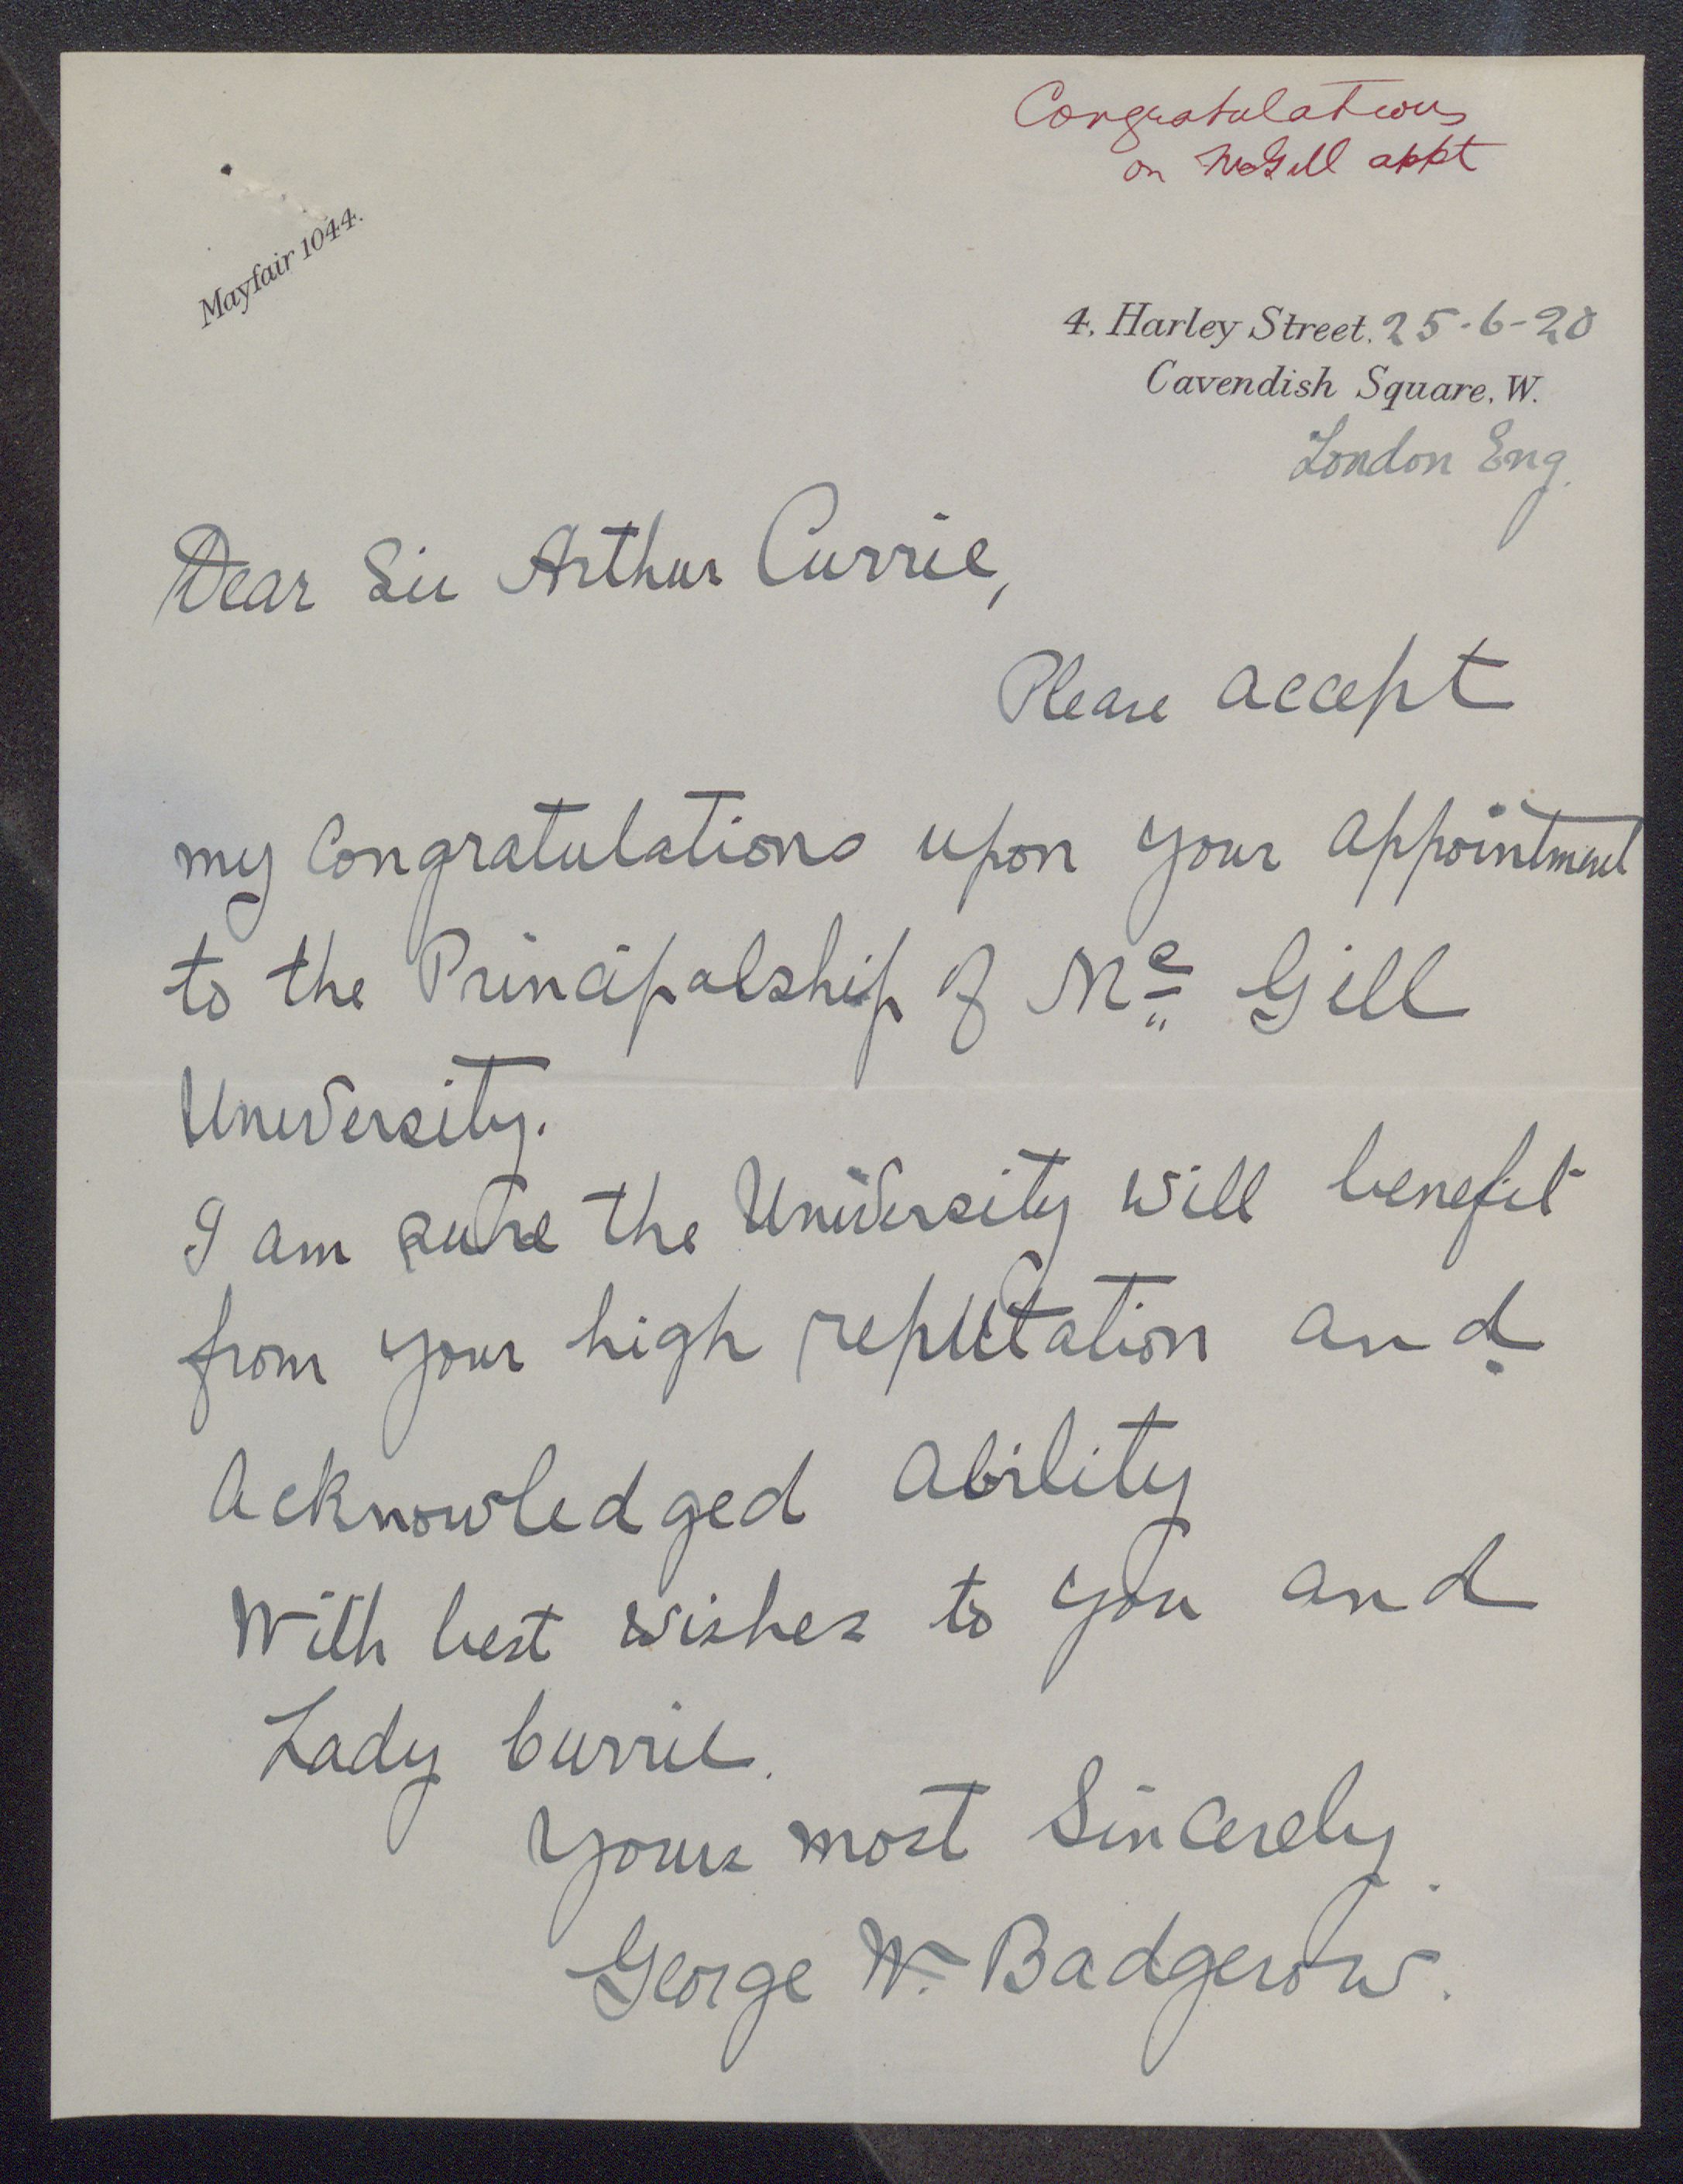 Congratulations
on McGill appt
Mayfair 1044.
4, Harley Street. 25-6-20
Cavendish Square, W.
London Eng.
Dear Sir Arthur Currie,
Please accept
my Congratulations upon your appointment
to the Principalship of Mc Gill
University.
I am sure the University will benefit
from your high reputation and
Acknowledged ability
With best wishes to you and
Lady Currie.
Yours most Sincerely.
George W. Badgerow.